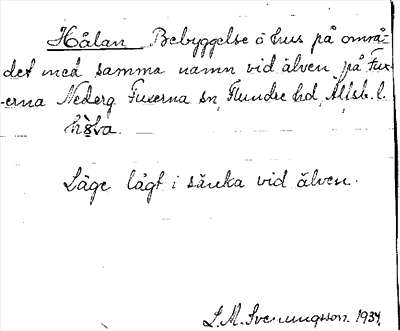 Hålan Bebyggelse o hus på områ-
det med samma namn vid älven på Fux-
erna Nederg. Fuxerna sn, Flundre hd, Älfsb. l.
Läge lågt i sänka vid älven.
L. M. Svenungsson. 1934.